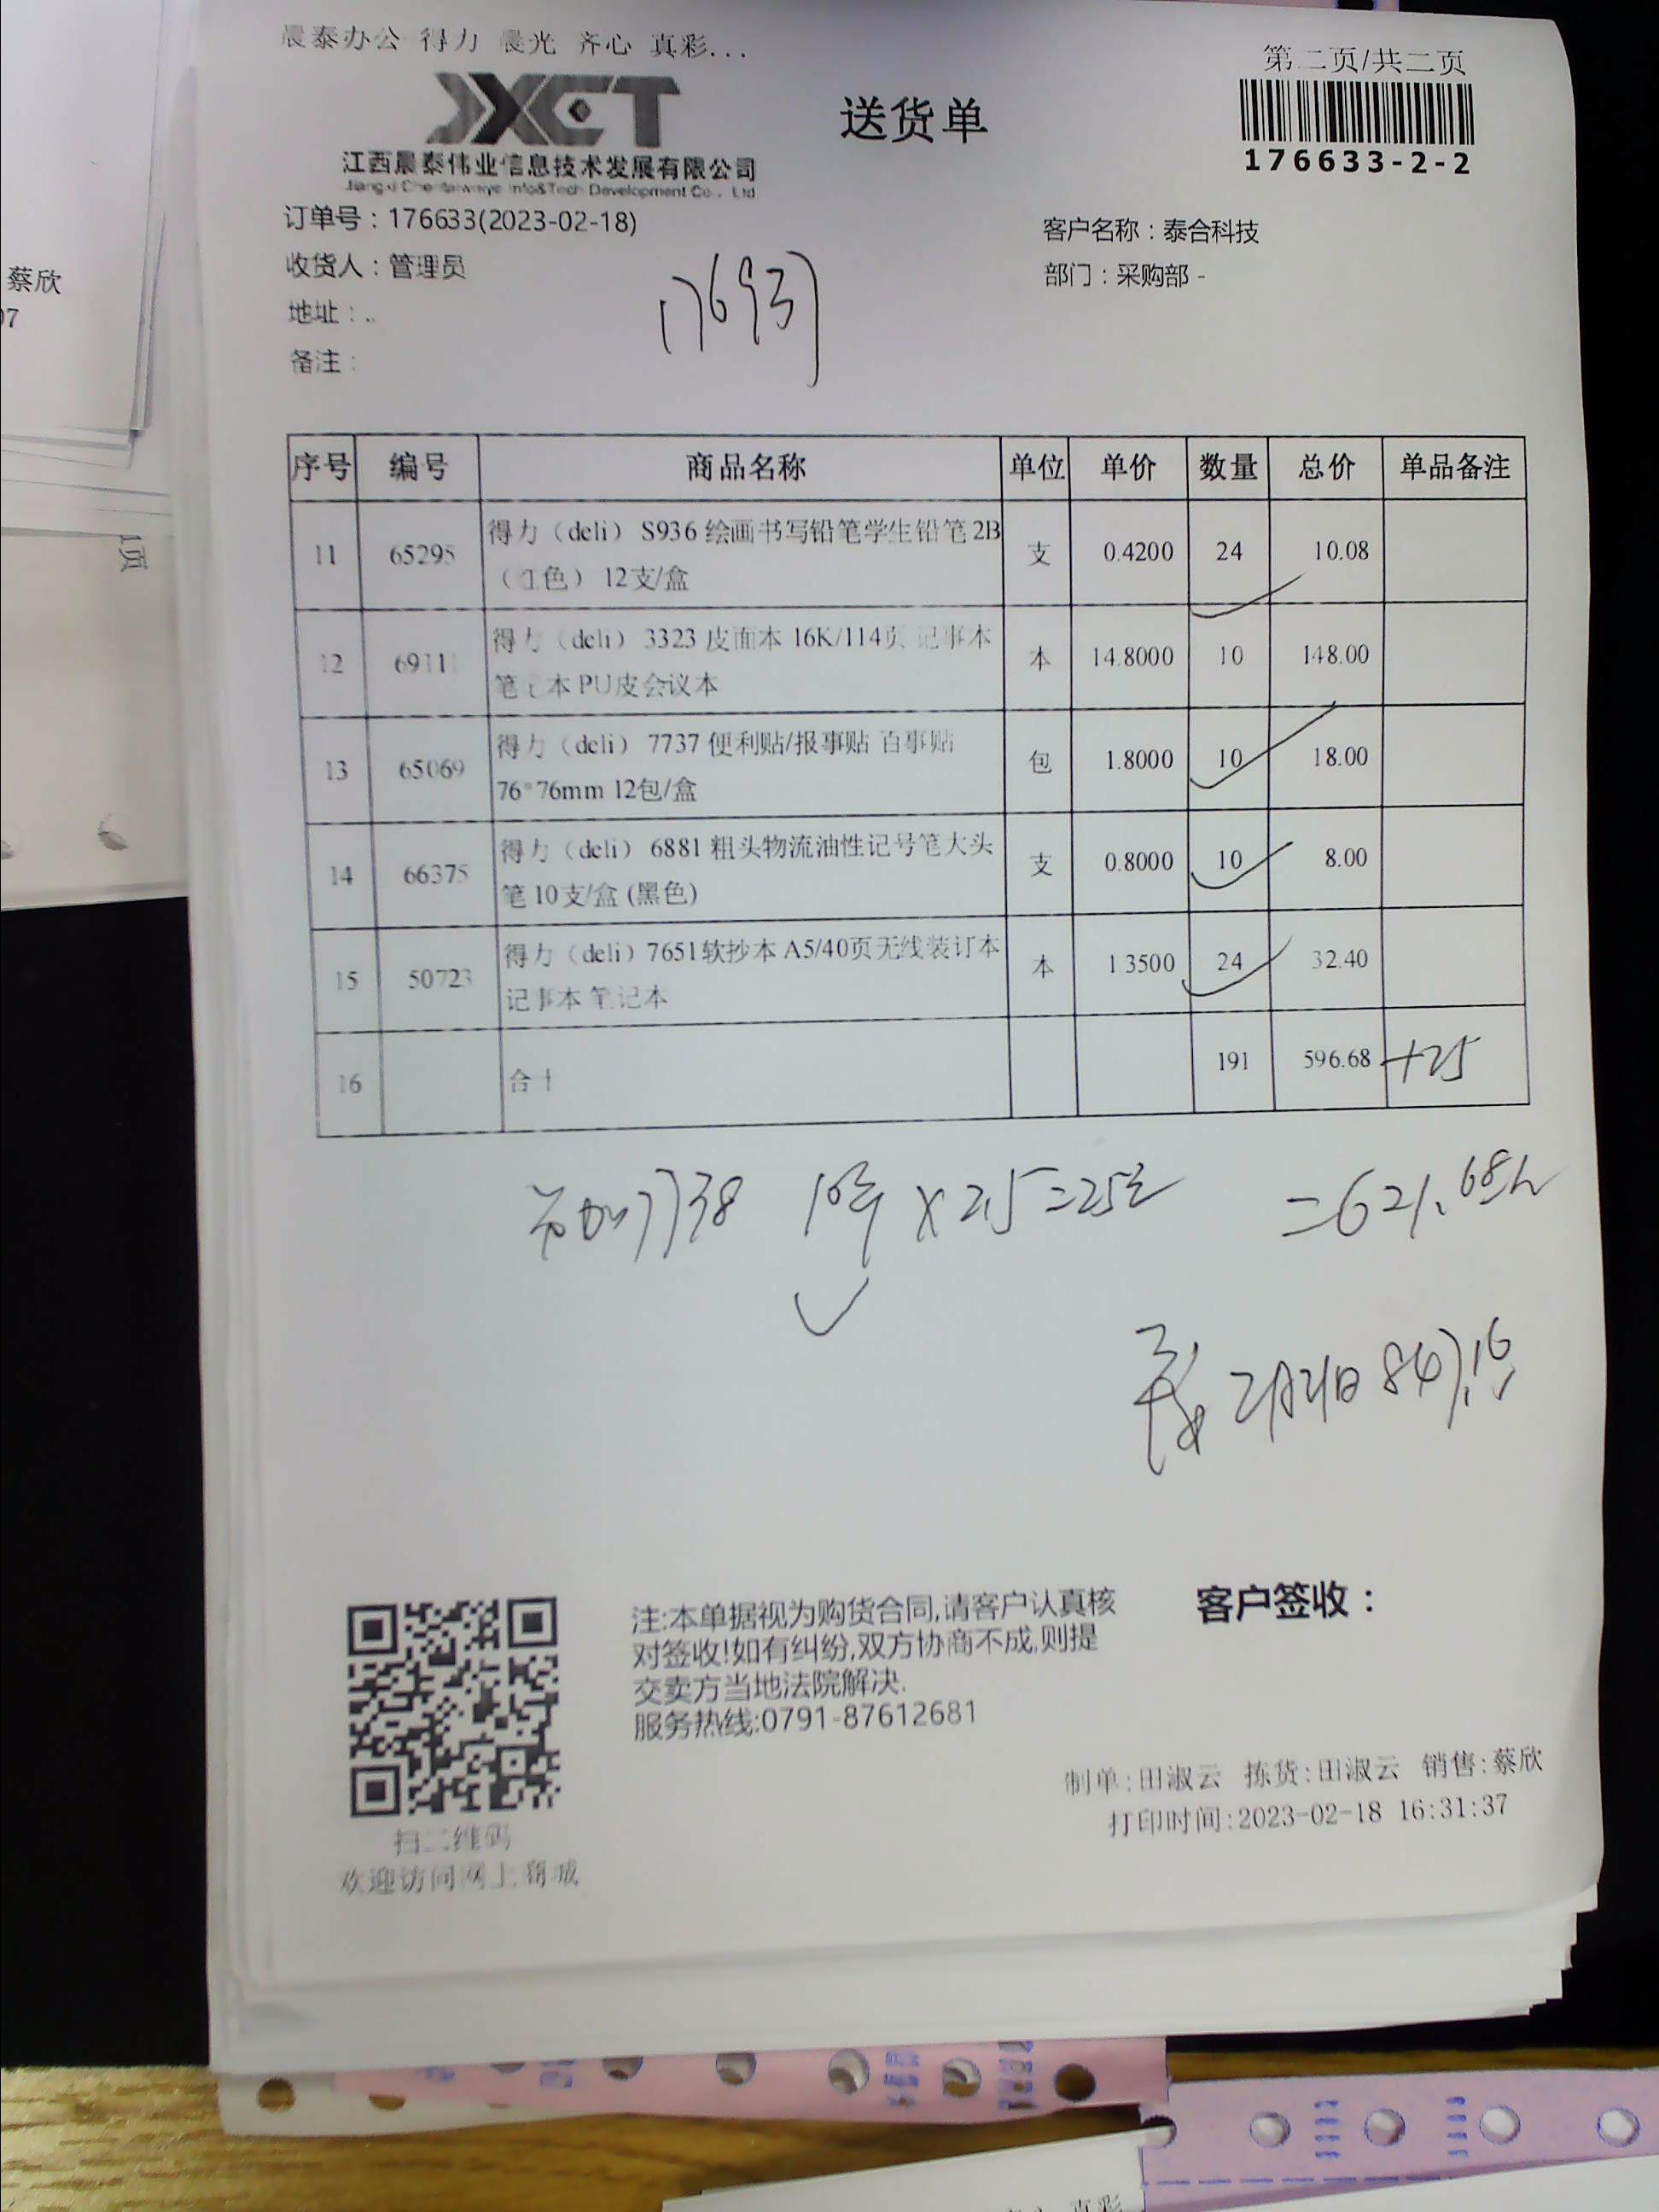 晨泰办公 得力 晨光 齐心 真彩...
第二页/共二页
JXCT
送货单
176633-2-2
江西晨泰伟业信息技术发展有限公司
订单号：176633(2023-02-18)
客户名称：泰合科技
收货人：管理员
部门：采购部 -
地址：..
备注：
序号 编号 商品名称 单位 单价 数量 总价 单品备注
11 65295 得力（deli） S936 绘画书写铅笔学生铅笔 2B 支 0.4200 24 10.08
（红色） 12支/盒
12 69111 得力（deli） 3323 皮面本 16K/114页 记事本 本 14.8000 10 148.00
笔记本 PU皮会议本
13 65069 得力（deli） 7737 便利贴/报事贴 百事贴 包 1.8000 10 18.00
76*76mm 12包/盒
14 66375 得力（deli） 6881 粗头物流油性记号笔大头 支 0.8000 10 8.00
笔 10支/盒 (黑色)
15 50723 得力（deli）7651软抄本 A5/40页无线装订本 本 1.3500 24 32.40
记事本 笔记本
16 合计 191 596.68 +25
7738 ×2.5=25元 =621.68
2月21日 847.16
注:本单据视为购货合同,请客户认真核
对签收!如有纠纷,双方协商不成,则提
交卖方当地法院解决.
服务热线:0791-87612681
客户签收：
制单:田淑云 拣货:田淑云 销售:蔡欣
打印时间:2023-02-18 16:31:37
扫二维码
欢迎访问网上商城
蔡欣